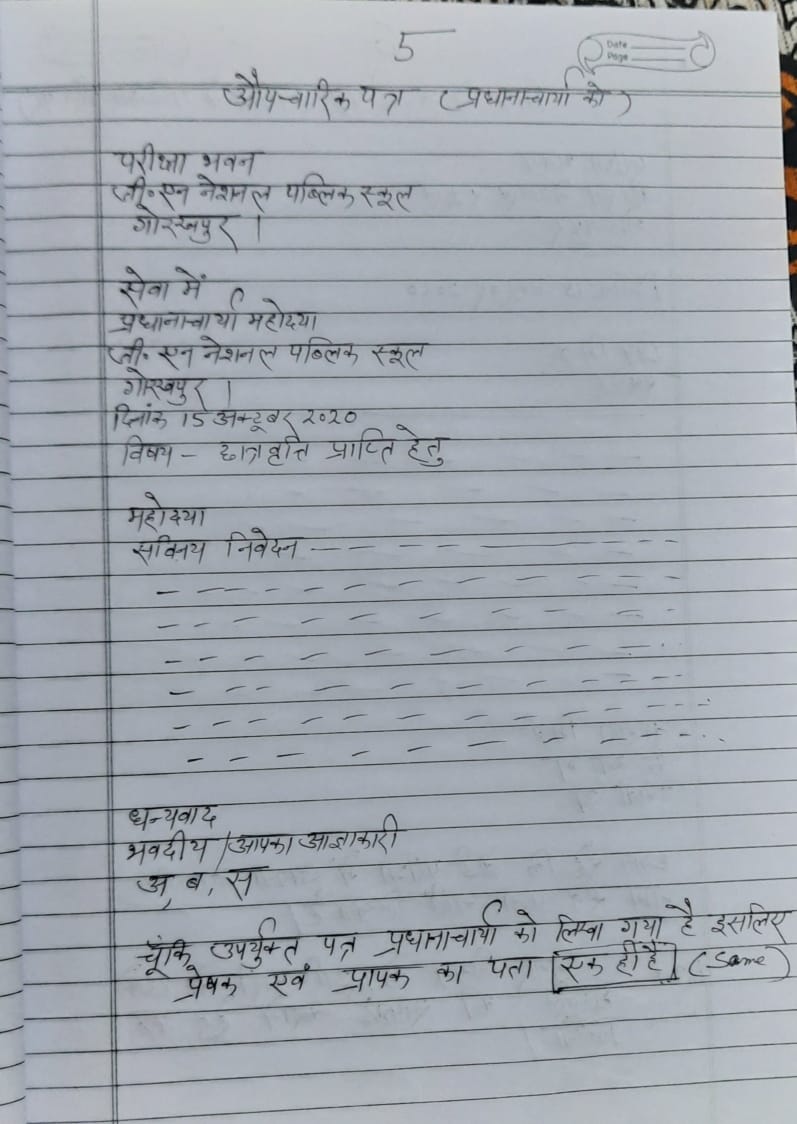 5
Date
Page
औपचारिक पत्र (प्रधानाचार्या को)
परीक्षा भवन
जी॰ एन नेशनल पब्लिक स्कूल
गोरखपुर ।
सेवा में
प्रधानाचार्या महोदया
जी॰ एन नेशनल पब्लिक स्कूल
गोरखपुर ।
दिनांक 15 अक्टूबर 2020
विषय - छात्रवृत्ति प्राप्ति हेतु
महोदया
सविनय निवेदन
धन्यवाद
भवदीय /आपका आज्ञाकारी
अ, ब, स
चूँकि उपर्युक्त पत्र प्रधानाचार्या को लिखा गया है इसलिए
प्रेषक एवं प्रापक का पता एक ही है (Same)